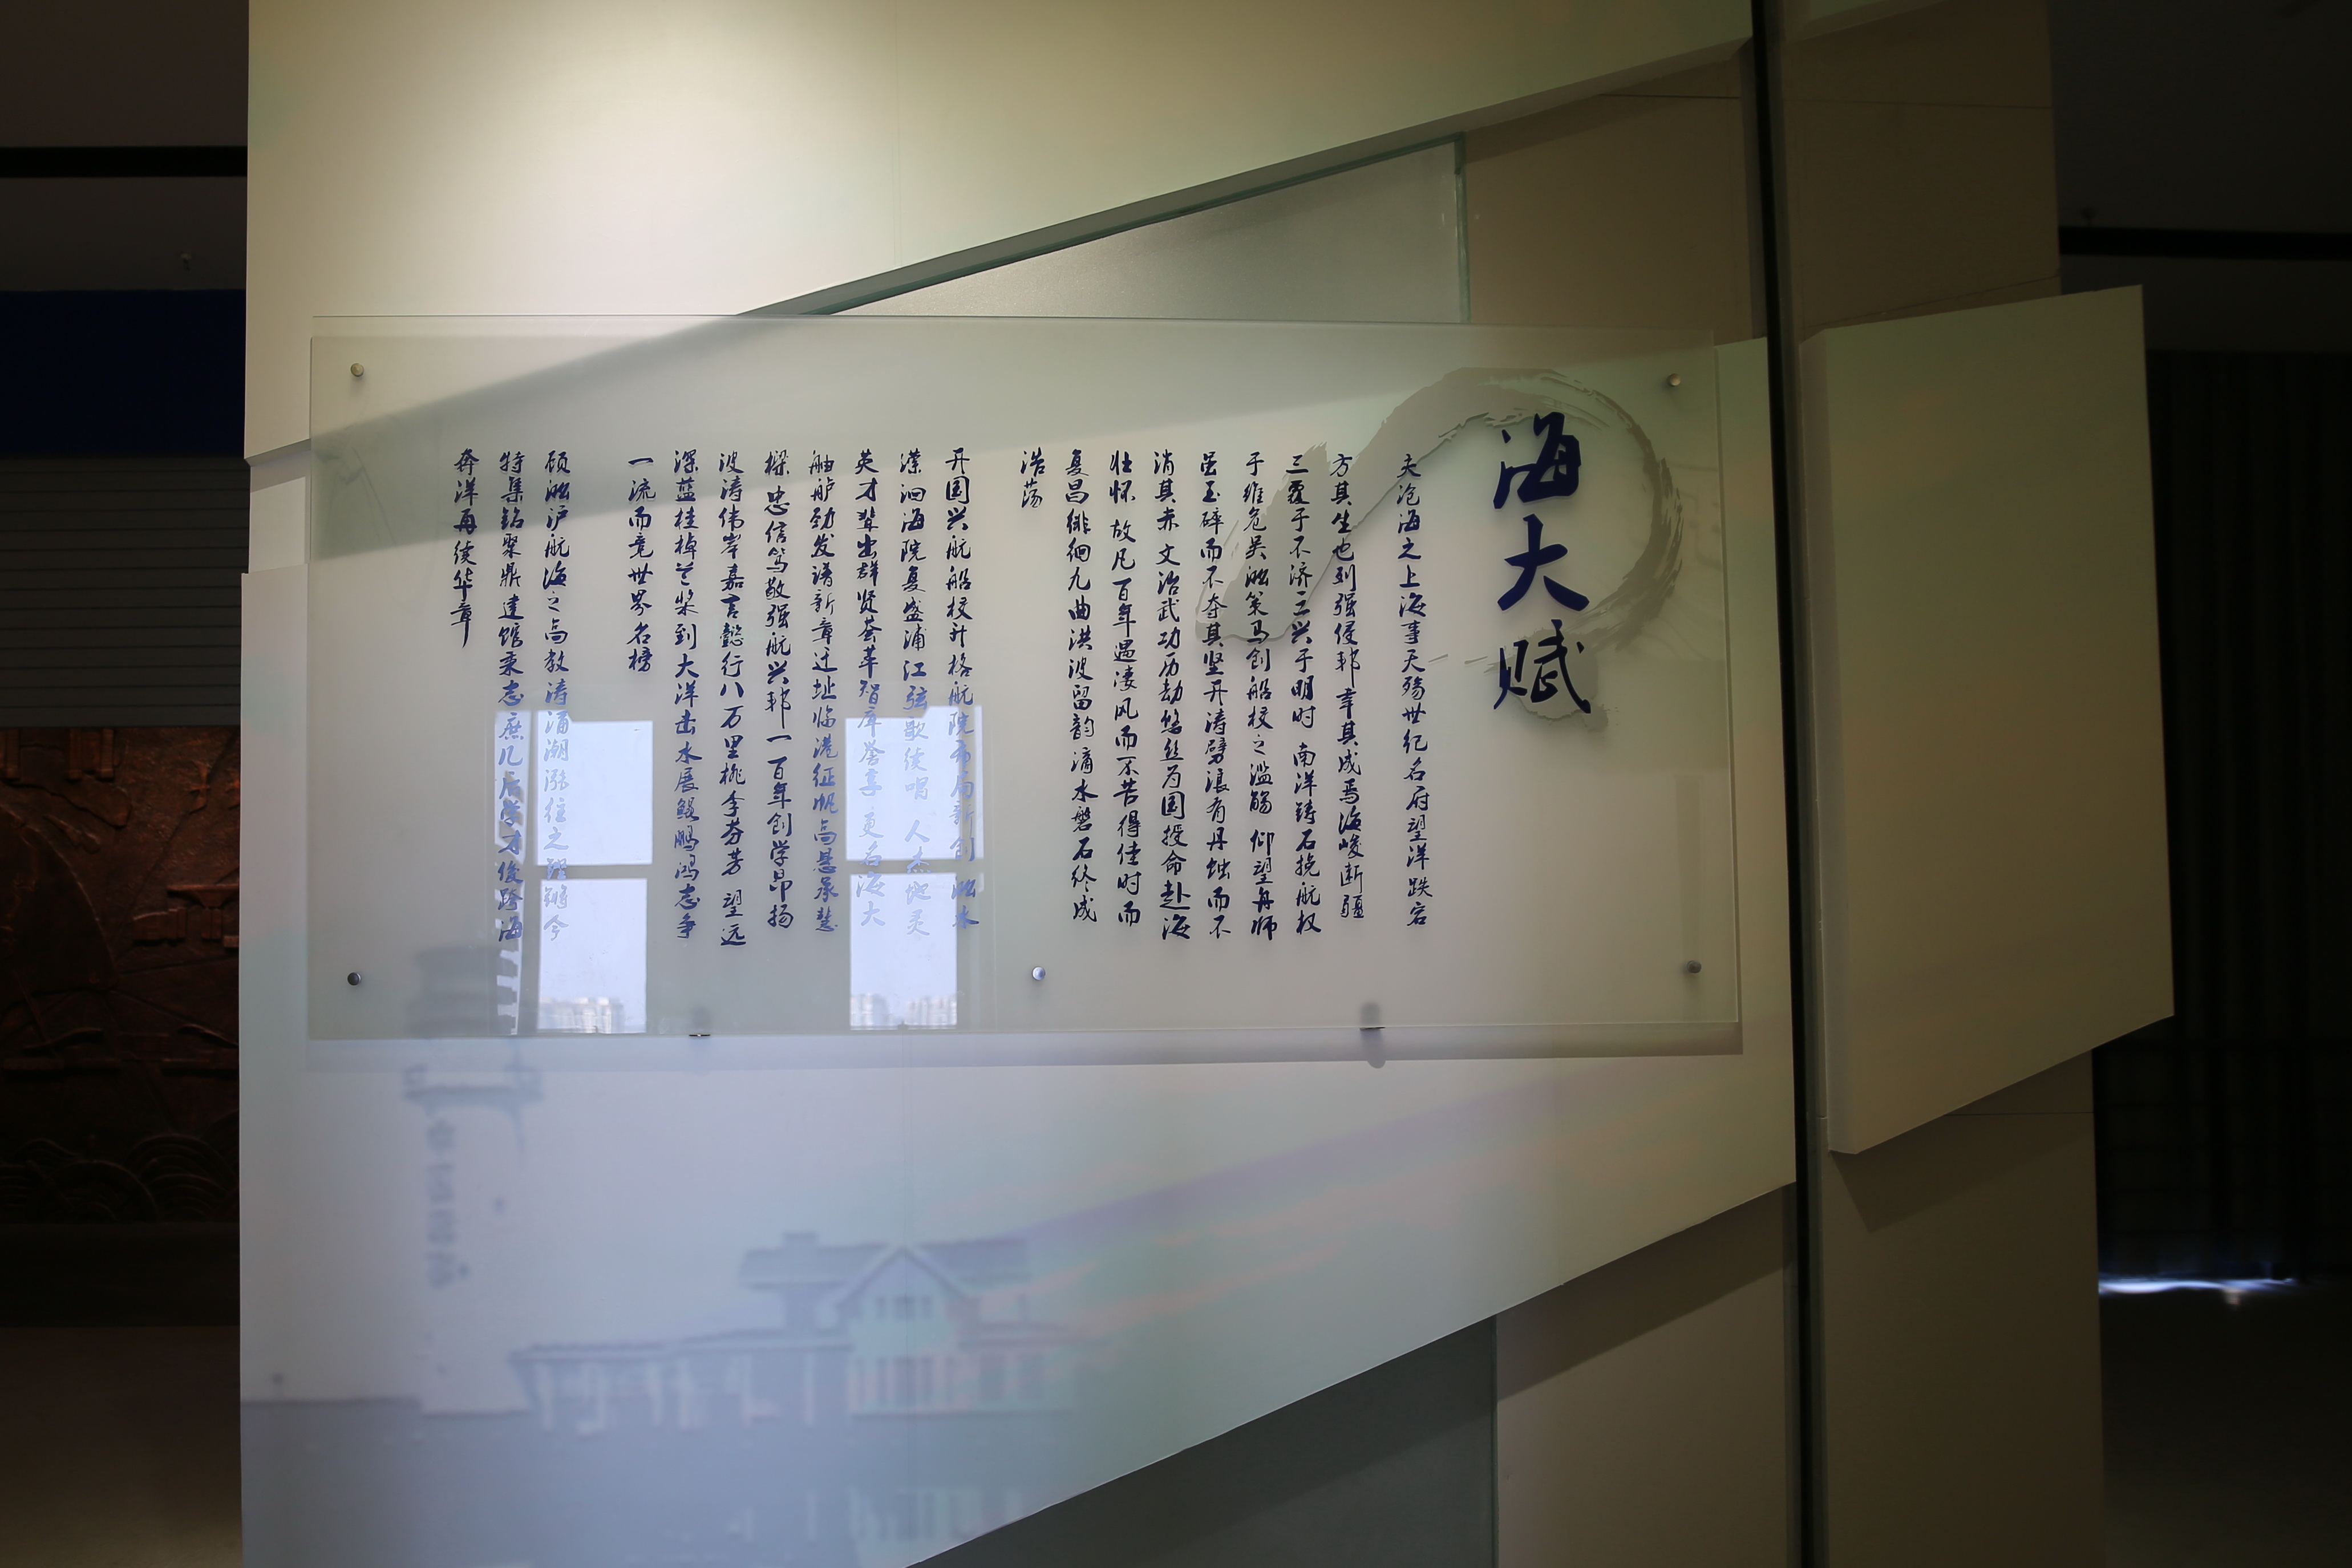 海大赋
夫沧海之上海事天殇世纪名府望洋跌宕
方其生也列强侵邦幸其成焉海峻断疆
三覆于不济三兴于明时 南洋铸石挽航权
于维危吴淞策马创船校之滥觞 仰望舟师
虽玉碎而不夺其坚开涛劈浪有丹蚀而不
消其赤 文治武功历劫悠丝为国授命赴海
壮怀 故凡百年遇凄风而不苦得佳时而
复昌徘徊九曲洪波留韵滴水磐石终成
浩荡
开国兴航船校升格航院布局新创 淞水
潆洄海院复盛浦江弦歌续唱 人杰地灵
英才辈出群贤荟萃智库誉享 更名海大
舳舻劲发谱新章迁址临港征帆高悬承慧
樑 忠信笃敬强航兴邦一百年创学昂扬
波涛伟岸嘉言懿行八万里桃李芬芳 望远
深蓝桂棹兰桨到大洋击水展鲲鹏鸿志争
一流而竞世界名榜
顾淞沪航海之高教涛涌潮涨往之铿锵今
特集铭聚鼎建馆秉志庶几后学才俊跨海
奔洋再续华章